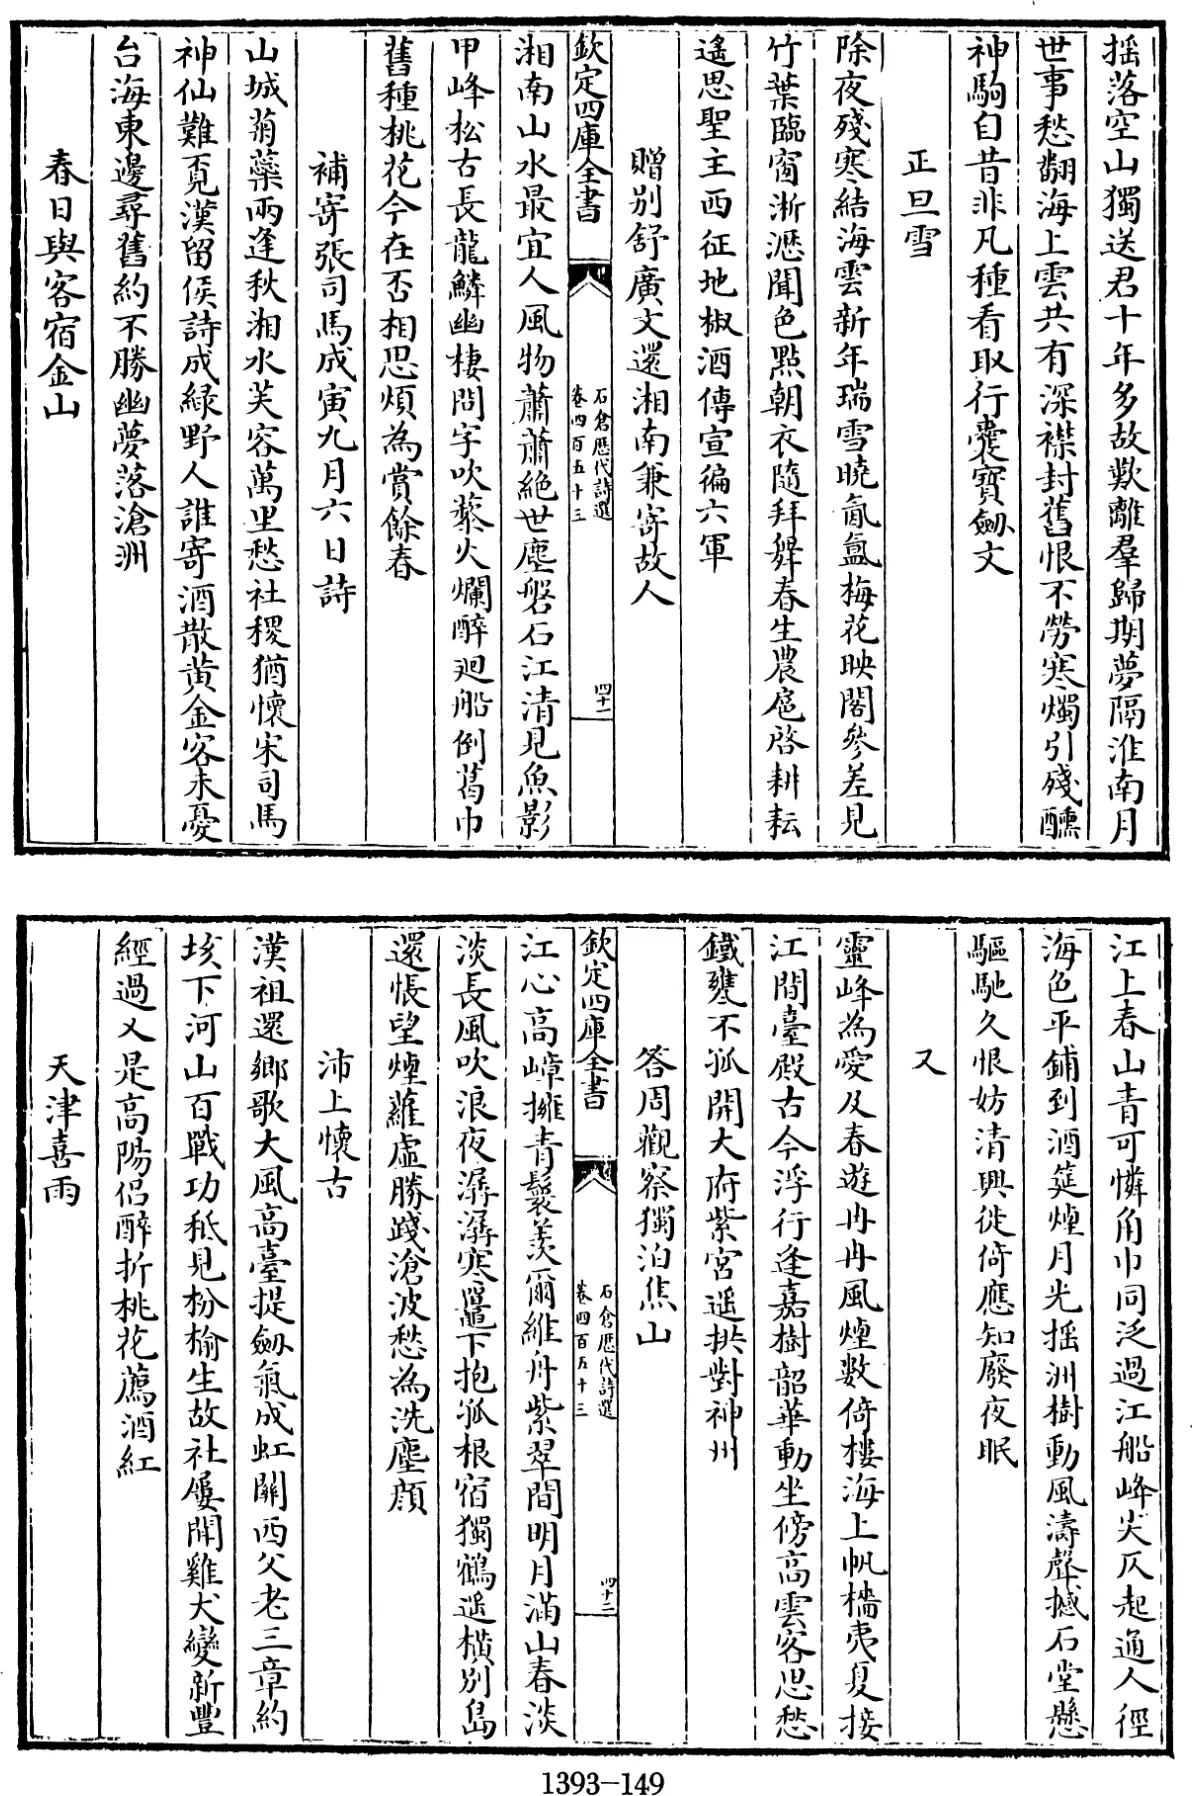 搖落空山獨送君十年多故歎離羣歸期夢隔淮南月
世事愁翻海上雲共有深襟封舊恨不勞寒燭引殘醺
神駒自昔非凡種看取行囊寶劒文
正旦雪
除夜殘寒結海雲新年瑞雪曉氤氳梅花映閣參差見
竹葉臨窗淅瀝聞色點朝衣隨拜舞春生農扈啓耕耘
遙思聖主西征地椒酒傳宣徧六軍
贈别舒廣文還湘南兼寄故人
欽定四庫全書
石倉歷代詩選
卷四百五十三
四十一
湘南山水最宜人風物蕭蕭絶世塵磐石江清見魚影
甲峰松古長龍鱗幽棲問字吹藜火爛醉廻船倒葛巾
舊種桃花今在否相思煩為賞餘春
補寄張司馬戍寅九月六日詩
山城菊蘂兩逢秋湘水芙容萬里愁社稷猶懷宋司馬
神仙難覓漢留侯詩成緑野人誰寄酒散黄金客未憂
台海東邊尋舊約不勝幽夢落滄洲
春日與客宿金山
江上春山青可憐角巾同泛過江船峰尖仄起通人徑
海色平鋪到酒筵煙月光揺洲樹動風濤聲撼石堂懸
驅馳久恨妨清興徙倚應知廢夜眠
又
靈峰為愛及春遊冉冉風煙數倚樓海上帆檣夷夏接
江間臺殿古今浮行逢嘉樹韶華動坐傍高雲客思愁
鐵甕不孤開大府紫宮遥拱對神州
答周觀察獨泊焦山
欽定四庫全書
石倉歷代詩選
卷四百五十三
四十二
江心高嶂擁青鬟羨爾維舟紫翠間明月滿山春淡
淡長風吹浪夜潺潺寒鼉下抱孤根宿獨鶴遥橫别島
還悵望煙蘿虛勝踐滄波愁為洗塵顔
沛上懷古
漢祖還鄉歌大風高臺提劒氣成虹關西父老三章約
垓下河山百戰功秪見枌榆生故社屢開雞犬變新豐
經過又是高陽侣醉折桃花薦酒紅
天津喜雨
1393-149